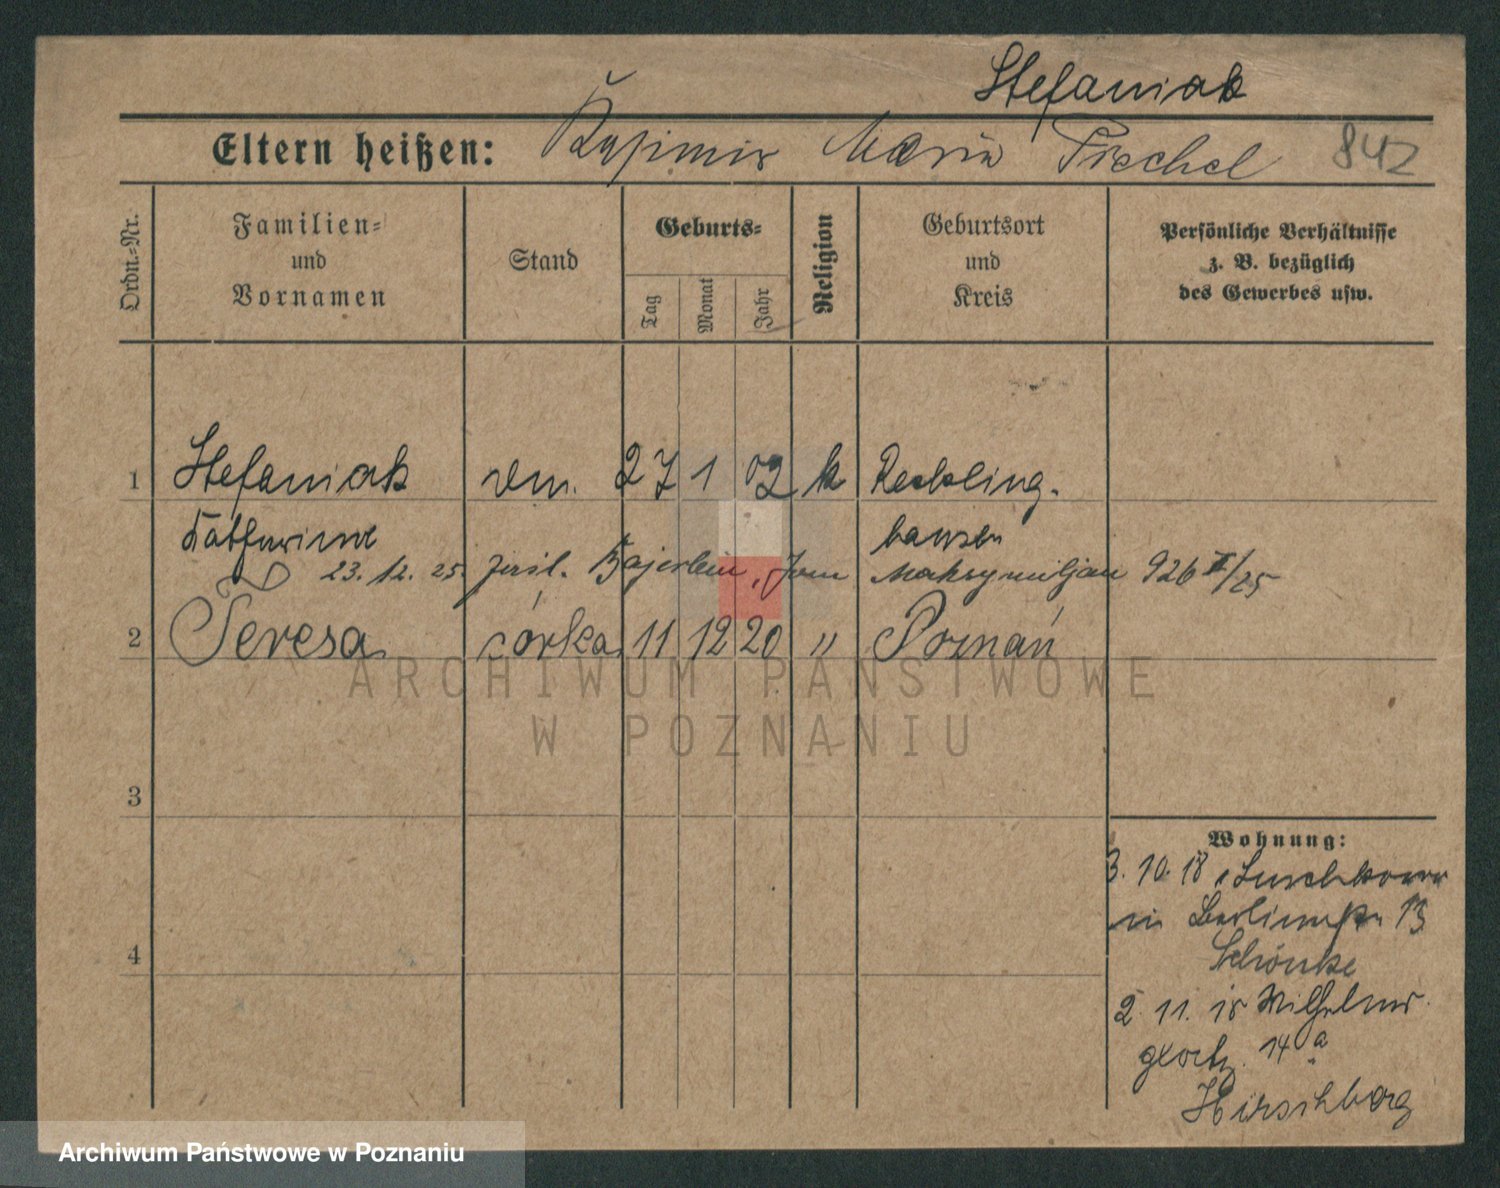 Stefaniak
Eltern heißen: Kasimir Maria Piechel 842
Ordn.-Nr.
Familien= und Vornamen
Stand
Geburts=
Tag Monat Jahr
Religion
Geburtsort und Kreis
Persönliche Verhältnisse z. B. bezüglich des Gewerbes usw.
1 Stefaniak 27 1 02 k Reckling-
Katharina hausen
23.12.25. Bajerlein, Jan Maksymiljan 926 II/25
2 Teresa córka 11 12 20 " Poznań
ARCHIWUM PAŃSTWOWE
W POZNANIU
3
Wohnung:
3. 10. 18
in Berlinerstr 13
4
Schönke
2. 11. 18 Wilhelms-
14 a
Hirschberg
Archiwum Państwowe w Poznaniu